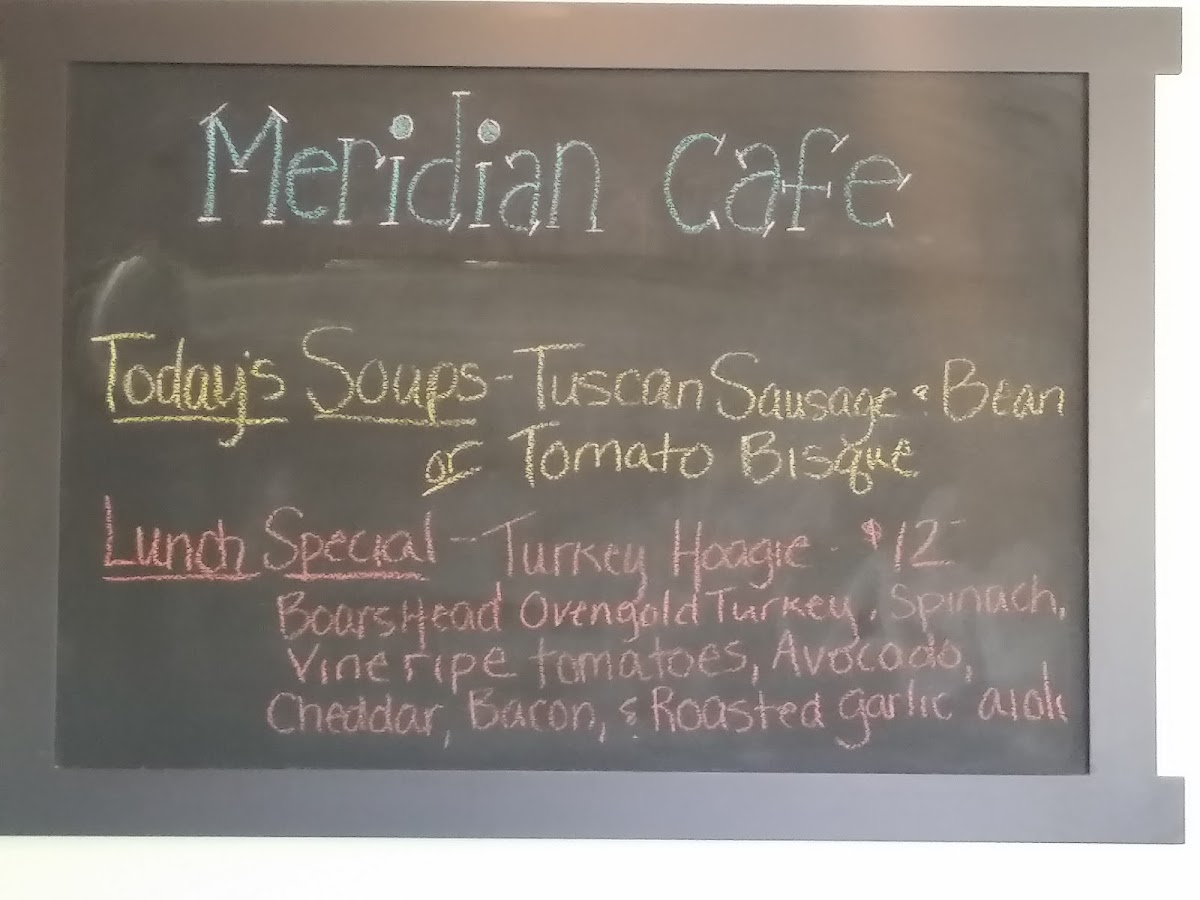 Meridian Cafe
Today's Soups - Tuscan Sausage & Bean
or Tomato Bisque
Lunch Special - Turkey Hoagie - $12
Boars Head Ovengold Turkey, Spinach,
Vine ripe tomatoes, Avocado,
Cheddar, Bacon, & Roasted garlic aioli